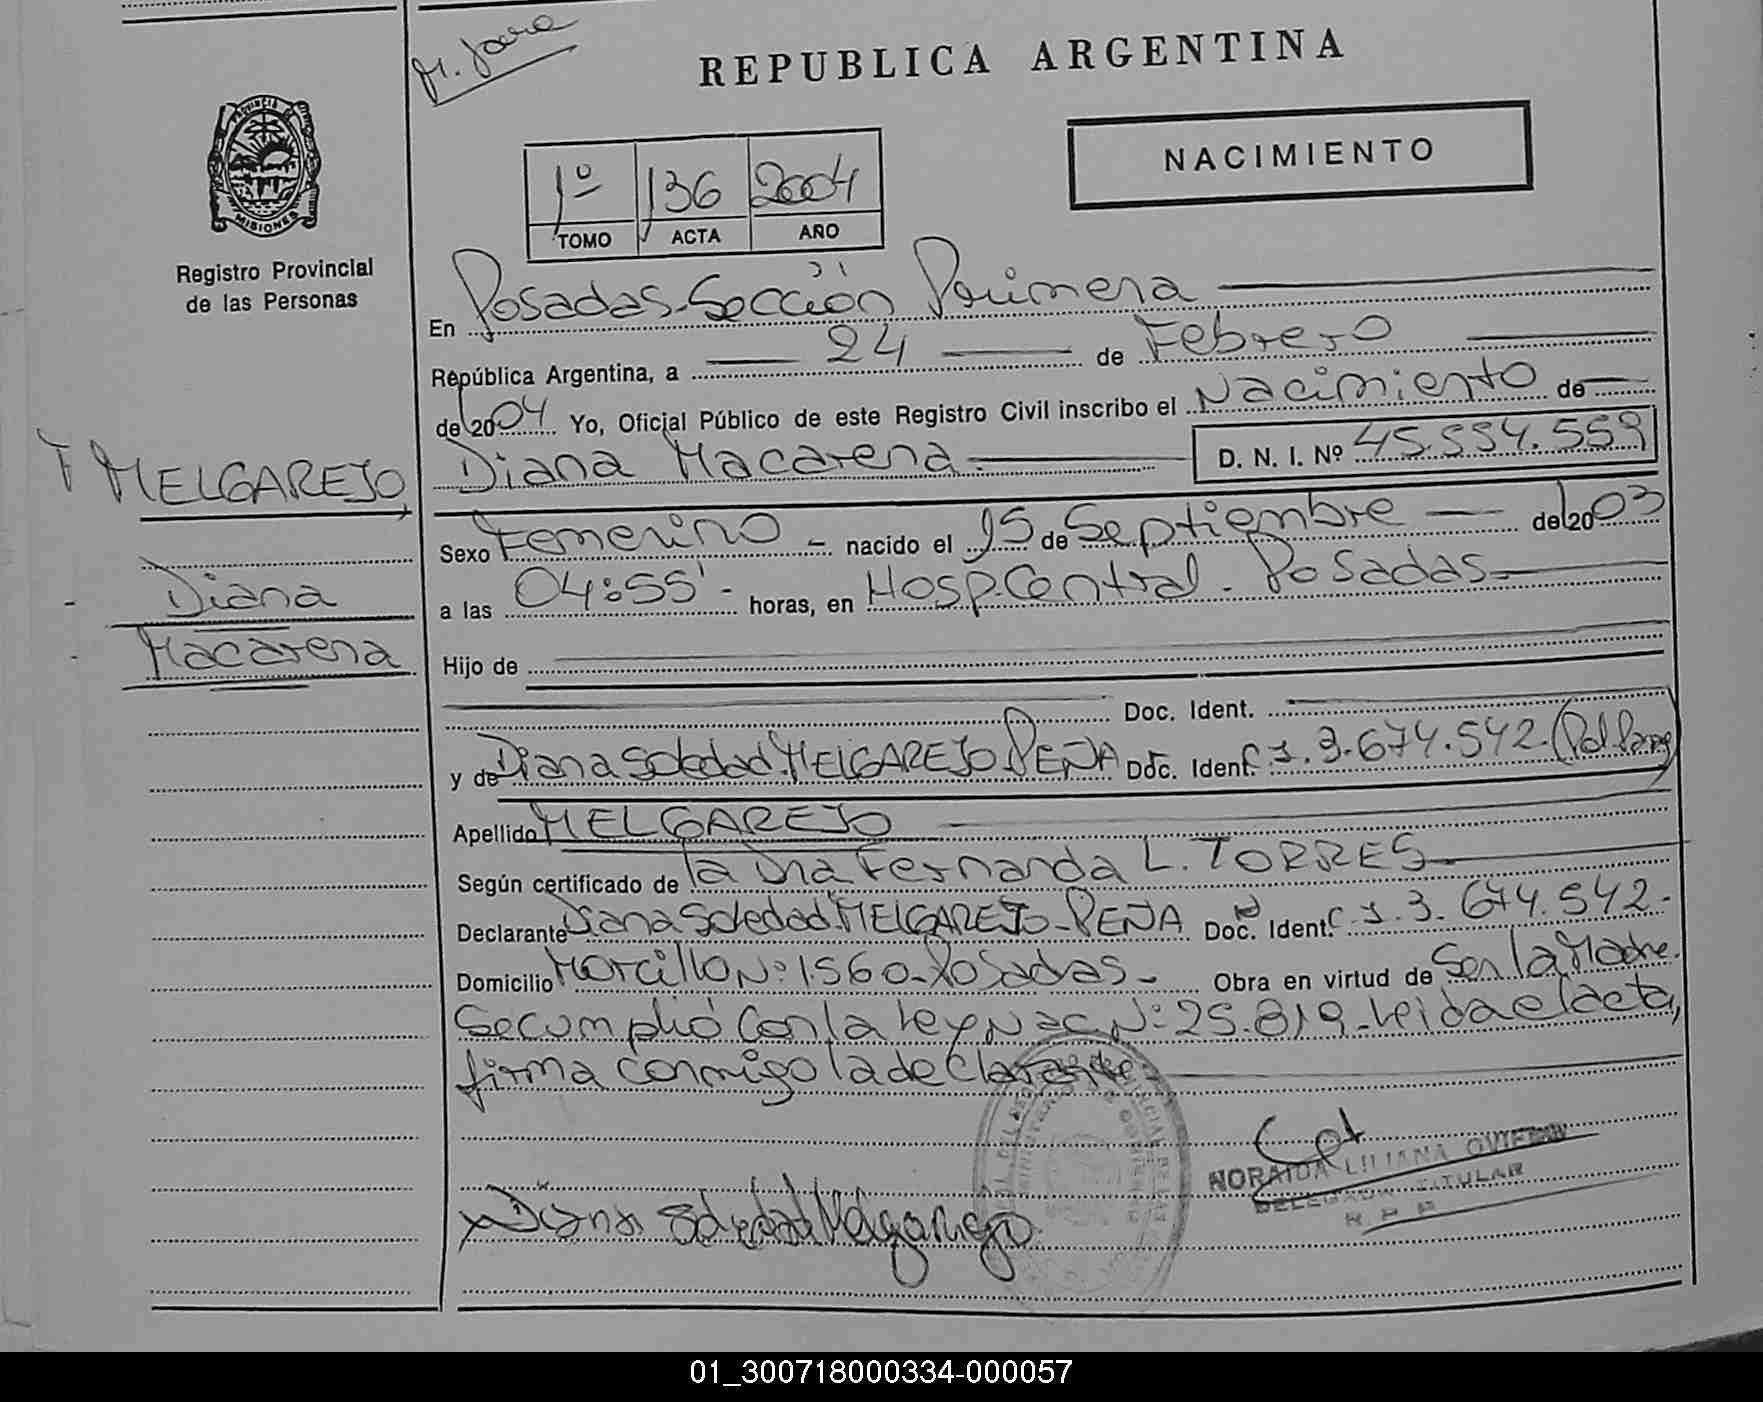 REPUBLICA ARGENTINA
NACIMIENTO
1º 136 2004
TOMO ACTA AÑO
PROVINCIA DE
MISIONES
Registro Provincial
de las Personas
En Posadas-Sección Primera
República Argentina, a 24 de Febrero
de 2004 Yo, Oficial Público de este Registro Civil inscribo el Nacimiento de
Diana Macarena D. N. I. Nº 45.554.559
MELGAREJO
Diana
Macarena
Sexo Femenino - nacido el 15 de Septiembre de 2003
a las 04:55' - horas, en Hosp. Central - Posadas
Hijo de
Doc. Ident.
y de Diana Soledad MELGAREJO PEÑA Doc. Ident. C.I. 3.674.542 (Pol. Parag)
Apellido MELGAREJO
Según certificado de la Dra Fernanda L. TORRES
Declarante Diana Soledad MELGAREJO-PEÑA Doc. Ident. C.I. 3.674.542-
Domicilio Morcillo Nº 1560-Posadas- Obra en virtud de Ser la Madre.
Se cumplió con la Ley Nac Nº 25.819-Leida el acta,
firma conmigo la declarante
NORAIDA LILIANA
TITULAR
R P P
Diana Soledad Melgarejo
01_300718000334-000057